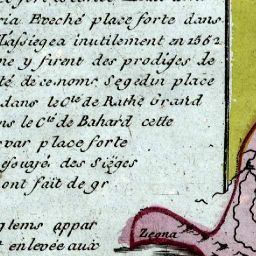 ria Eveché place forte dans
l'assiegea inutilement en 1562
ne y firent des prodiges de
té de ce noms Segedin place
dans le Cte de Rathe Grand
ns le Cte de Bahard cette
var place forte
essuyé des Sièges
ont fait de gr
gtems appar
t enlevée aux
Zegna